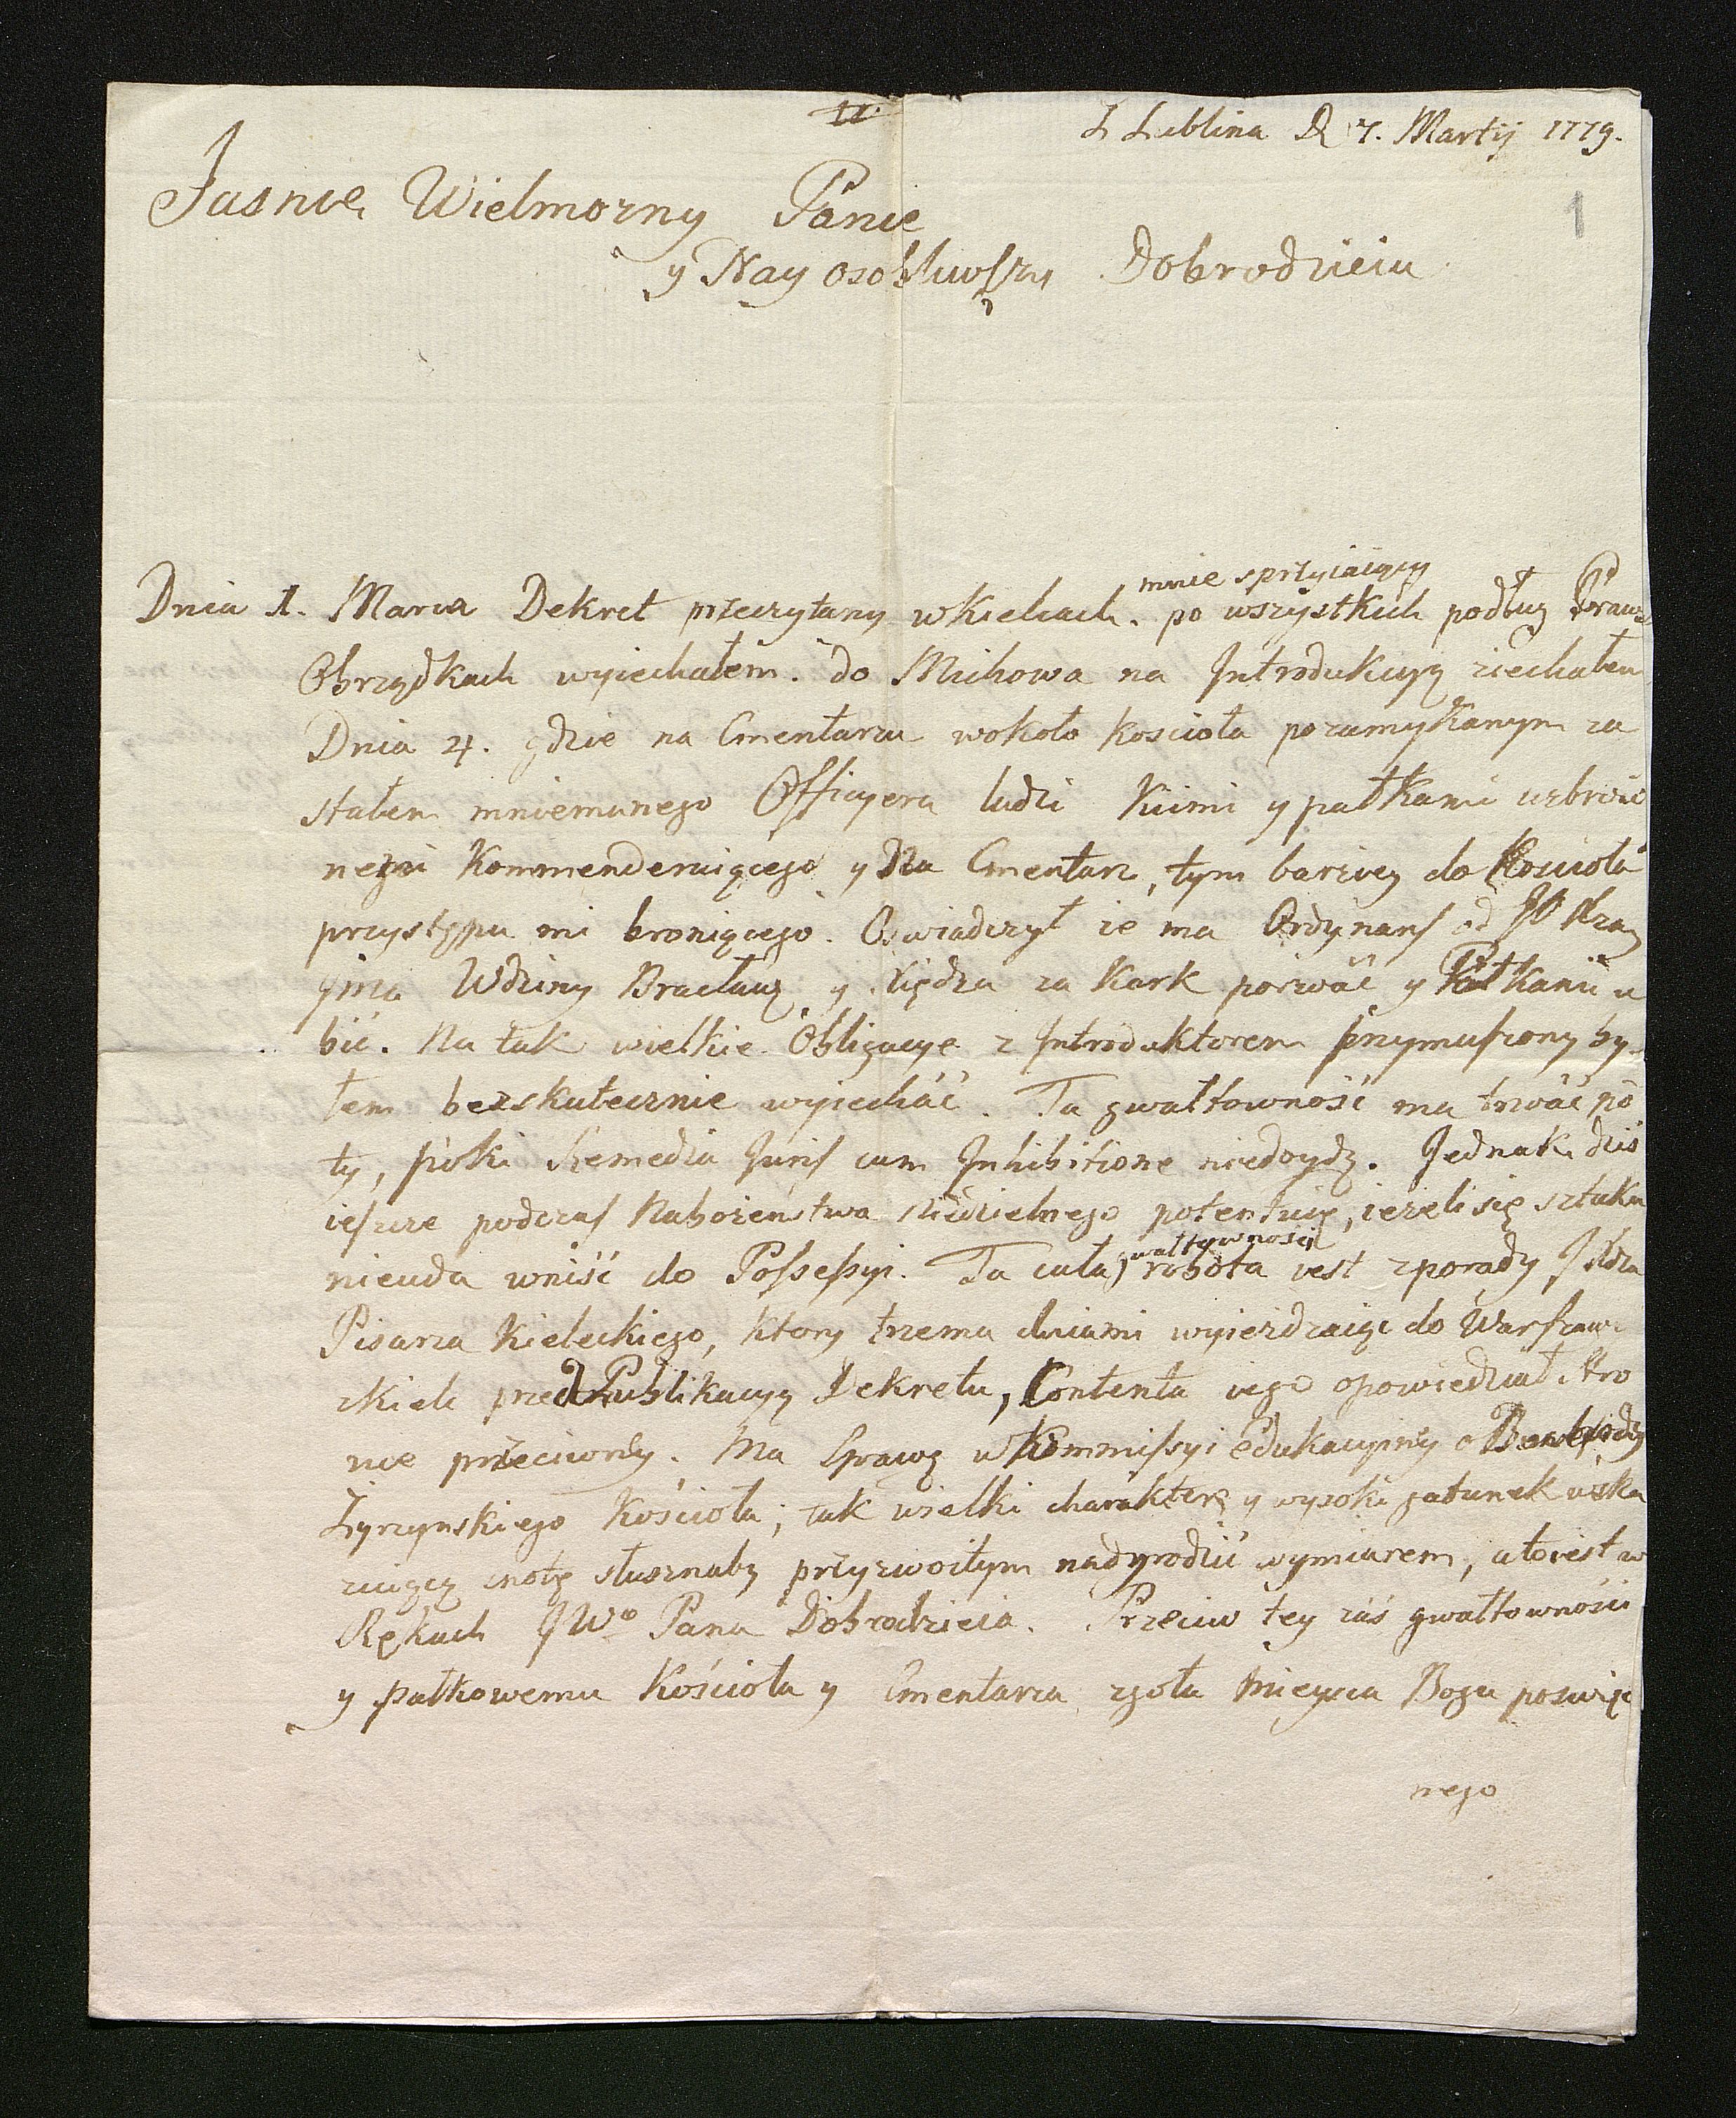 Z Lublina D 7. Martij 1779.
1
Jasnie Wielmozny Panie
y Nayosobliwszy Dobrodzieiu
mnie sprzyiaiący
Dnia 1. Marca Dekret przeczytany w Kielcach. po wszystkich podług Prawa
Obrządkach wyiechałem. do Michowa na Introdukcyą ziechałem
Dnia 4. gdzie na Cmentarzu wokoło koscioła pozamykanym za
stałem mniemanego Officyera ludzi Kiimi y pałkami uzbroio
nemi Kommenderuiącego y Na Cmentarz, tym barziey do Kościoła
przystępu mi broniącego. Oswiadczył ze ma Ordynans od JO
Wdziny Bracław y Xiędza za Kark porwać y Pałkami u
bić. Na tak wielkie Obligacye z Introduktorem przymuszony by
łem bezskutecznie wyiechać. Ta gwałtowność ma trwać pó
ty, póki Remedia Juris cum Inhibitione niedoydą. Jednak dziś
ieszcze podczas Nabożeństwa Niedzielnego potentuię, ieżeli się sztuka
nieuda wniść do Possessyi. Ta cała robota iest zporady JXdza
gwałtowności
Pisarza Kieleckiego, ktory trzema dniami wyieżdzaiąc do Warszawy
z Kielc przed Publikacyą Dekretu, Contenta iego opowiedział Stro
nie przeciwney. Ma Sprawę w Kommissyi edukacyiney o
Żyrzynskiego Kościoła; tak wielki charakter y wysoki gatunek wska
zuiący cnotę słusznaby przyzwoitym nadgrodzić wymiarem, a to iest w
Rękach JWo Pana Dobrodzieia. Przeciw tey zaś gwałtowności
y pałkowemu Kościoła y Cmentarza zgoła mieysca Bogu poswięc
nego